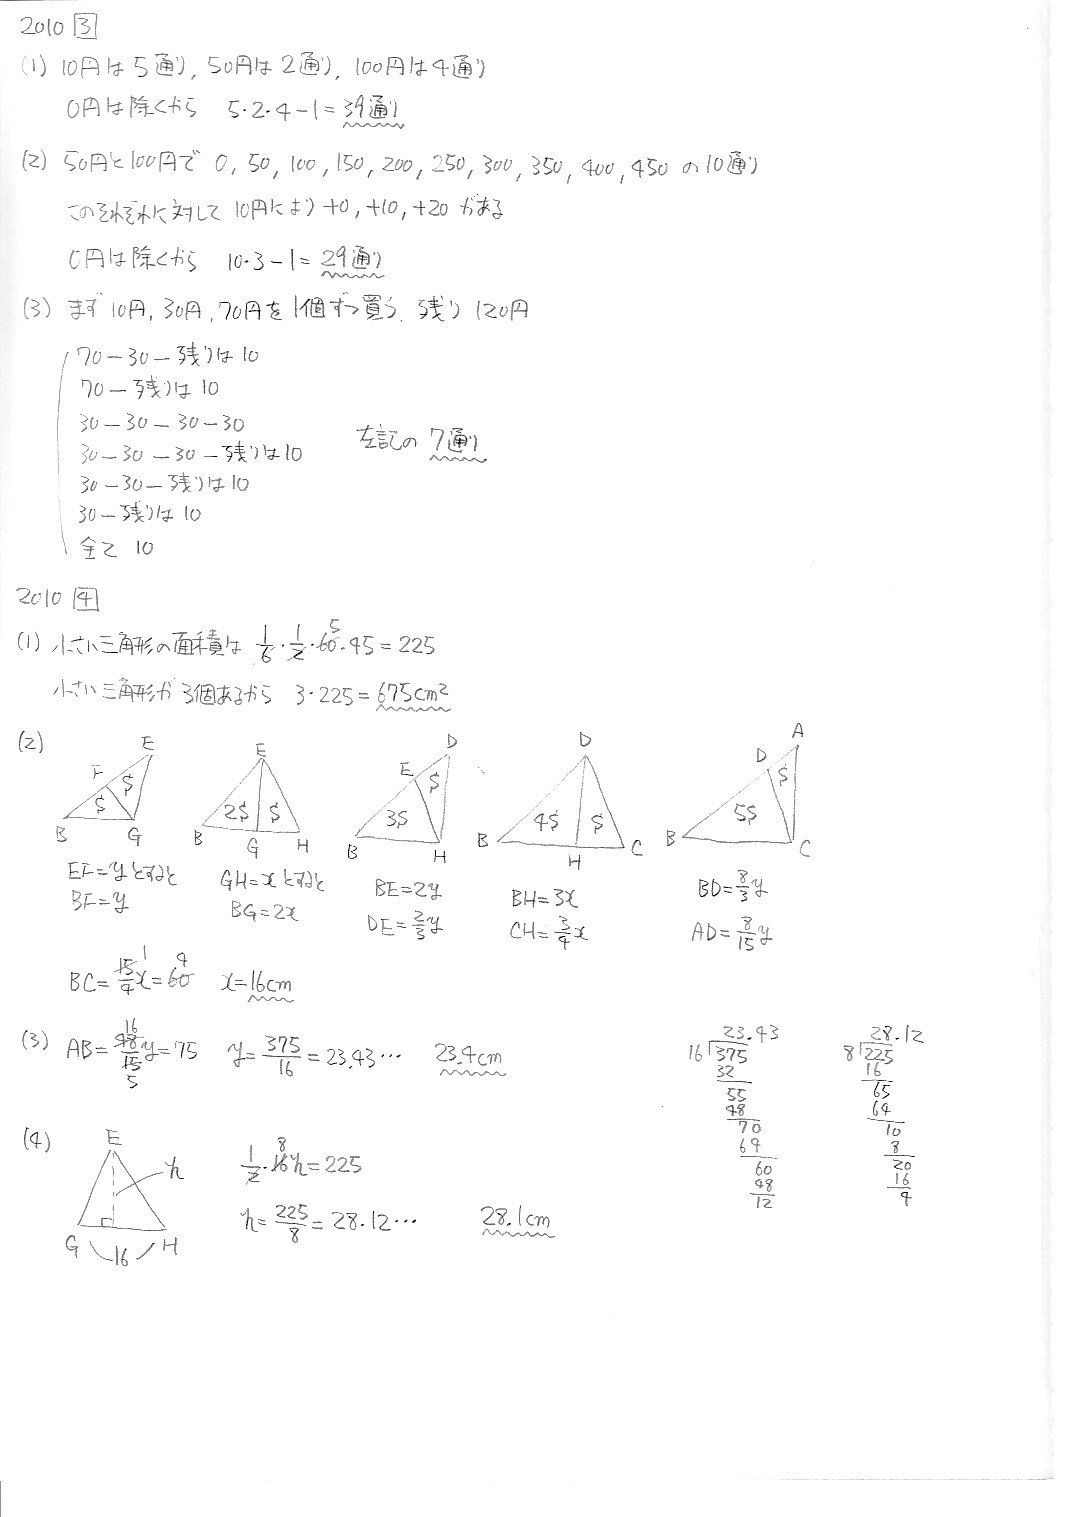 2010 3
(1) 10円は5通り, 50円は2通り, 100円は4通り
0円は除くから 5・2・4-1=39通り
(2) 50円と100円で 0, 50, 100, 150, 200, 250, 300, 350, 400, 450 の10通り
このそれぞれに対して 10円により +0, +10, +20 がある
0円は除くから 10・3-1=29通り
(3) まず10円, 30円, 70円を1個ずつ買う. 残り120円
70-30-残りは10
70-残りは10
30-30-30-30
30-30-30-残りは10
30-30-残りは10
30-残りは10
全て 10
左記の 7通り
2010 4
(1) 小さい三角形の面積は 1/6・1/2・60・45=225
5
小さい三角形が3個あるから 3・225=675cm²
(2)
E F B G S S
E B G H 2S S
D E B H 3S S
D B H C 4S S
A D B C 5S S
EF=yとすると
BF=y
GH=xとすると
BG=2x
BE=2y
DE=2/3y
BH=3x
CH=3/4x
BD=8/3y
AD=8/15y
BC=15/4x=60 x=16cm
1 4
(3) AB=48/15y=75 y=375/16=23.43… 23.4cm
16 5
23.43
16)375
32
55
48
70
64
60
48
12
28.12
8)225
16
65
64
10
8
20
16
4
(4) E h G H 16
1/2・16h=225
8
h=225/8=28.12… 28.1cm